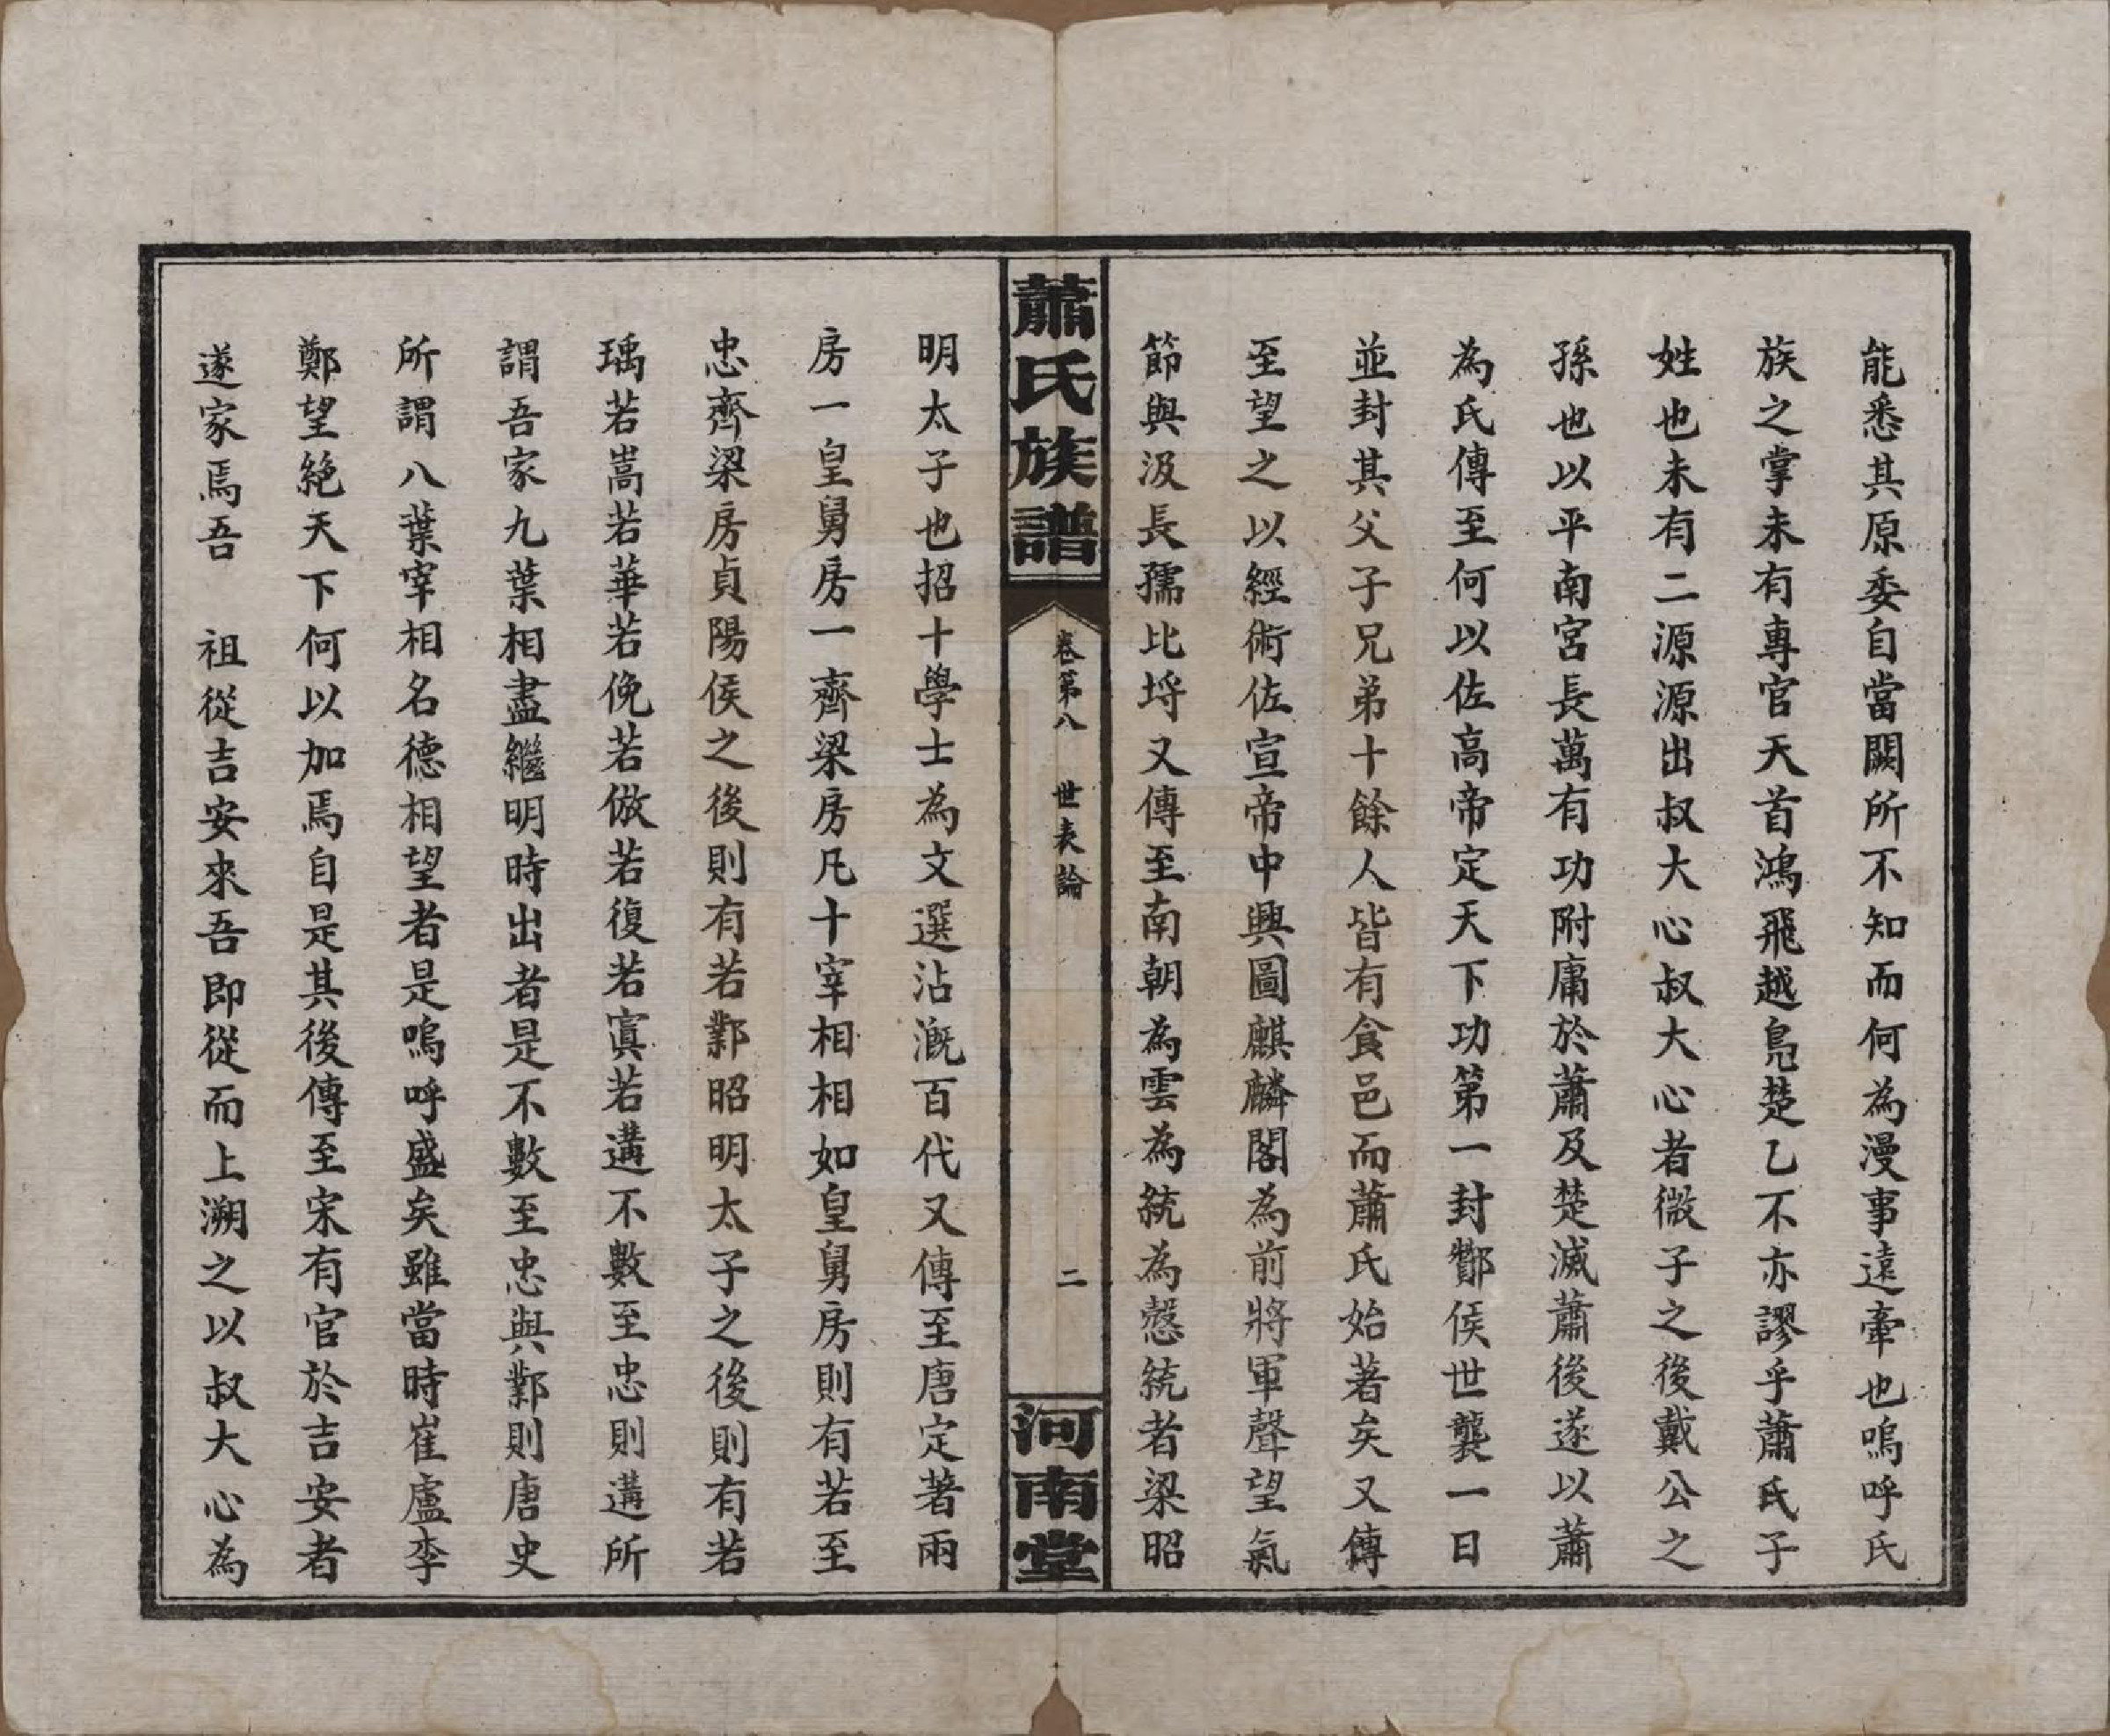 能悉其原委自當闕所不知而何為漫事遠牽也嗚呼氏
族之掌未有專官天首鴻飛越鳧楚乙不亦謬乎蕭氏子
姓也未有二源源出叔大心叔大心者微子之後戴公之
孫也以平南宮長萬有功附庸於蕭及楚滅蕭後遂以蕭
為氏傳至何以佐高帝定天下功第一封酇侯世襲一日
並封其父子兄弟十餘人皆有食邑而蕭氏始著矣又傳
至望之以經術佐宣帝中興圖麒麟閣為前將軍聲望氣
節與汲長孺比埒又傳至南朝為雲為統為慤統者梁昭
蕭氏族譜
卷第八 世表論
二
河南堂
明太子也招十學士為文選沾溉百代又傳至唐定著兩
房一皇舅房一齊梁房凡十宰相相如皇舅房則有若至
忠齊梁房貞陽侯之後則有若鄴昭明太子之後則有若
瑀若嵩若華若俛若倣若復若寘若遘不數至忠則遘所
謂吾家九葉相盡繼明時出者是不數至忠與鄴則唐史
所謂八葉宰相名德相望者是嗚呼盛矣雖當時崔盧李
鄭望絕天下何以加焉自是其後傳至宋有官於吉安者
遂家焉吾 祖從吉安來吾即從而上溯之以叔大心為